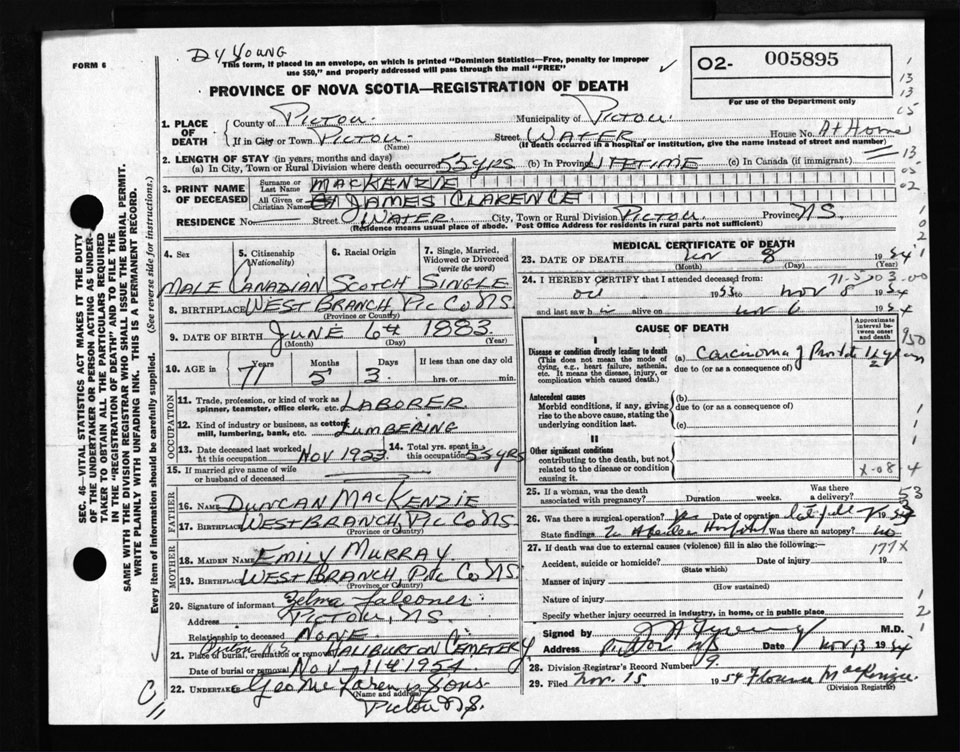 Dr Young
FORM 6
This form, if placed in an envelope, on which is printed "Dominion Statistics—Free, penalty for improper use $50," and properly addressed will pass through the mail "FREE"
O2- 005895
For use of the Department only
PROVINCE OF NOVA SCOTIA—REGISTRATION OF DEATH
1. PLACE OF DEATH
County of PICTOU. Municipality of PICTOU.
If in City or Town PICTOU. Street WATER House No. At Home
(Name) (If death occurred in a hospital or institution, give the name instead of street and number)
2. LENGTH OF STAY (in years, months and days)
(a) In City, Town or Rural Division where death occurred 55 YRS (b) In Province LIFETIME (c) In Canada (if immigrant)
3. PRINT NAME OF DECEASED
Surname or Last Name MACKENZIE
All Given or Christian Names JAMES CLARENCE
RESIDENCE No. Street WATER. City, Town or Rural Division PICTOU. Province N.S.
(Residence means usual place of abode. Post Office Address for residents in rural parts not sufficient)
4. Sex 5. Citizenship (Nationality) 6. Racial Origin 7. Single, Married, Widowed or Divorced (write the word)
MALE CANADIAN SCOTCH SINGLE
8. BIRTHPLACE WEST BRANCH PIC CO NS.
(Province or Country)
9. DATE OF BIRTH JUNE 6th 1883
(Month) (Day) (Year)
10. AGE in Years Months Days If less than one day old
71 5 3 hrs. or min.
OCCUPATION
11. Trade, profession, or kind of work as spinner, teamster, office clerk, etc. LABORER
12. Kind of industry or business, as cotton mill, lumbering, bank, etc. LUMBERING
13. Date deceased last worked at this occupation NOV 1933 14. Total yrs. spent in this occupation 53 YRS
15. If married give name of wife or husband of deceased
FATHER
16. NAME DUNCAN MACKENZIE
17. BIRTHPLACE WEST BRANCH, PIC CO NS.
MOTHER
18. MAIDEN NAME EMILY MURRAY.
19. BIRTHPLACE WEST BRANCH, PIC CO NS.
(Province or Country)
20. Signature of informant Zelma Falconer
Address PICTOU, NS.
Relationship to deceased NONE
21. Place of burial, cremation or removal HALIBURTON CEMETERY
Date of burial or removal NOV 11th 1954
22. UNDERTAKER Geo McLaren & Sons.
(Name and address)
Pictou N.S.
MEDICAL CERTIFICATE OF DEATH
23. DATE OF DEATH Nov 8 1954
(Month) (Day) (Year)
24. I HEREBY CERTIFY that I attended deceased from:
1953 to Nov 8 1954
and last saw h alive on Nov 6 1954
CAUSE OF DEATH
Approximate interval between onset and death
I
Disease or condition directly leading to death
(This does not mean the mode of dying, e.g., heart failure, asthenia, etc. It means the disease, injury, or complication which caused death.)
(a) Carcinoma of Prostate
due to (or as a consequence of)
Antecedent causes
Morbid conditions, if any, giving rise to the above cause, stating the underlying condition last.
(b)
due to (or as a consequence of)
(c)
II
Other significant conditions
contributing to the death, but not related to the disease or condition causing it.
X-08
25. If a woman, was the death associated with pregnancy? Duration weeks. Was there a delivery?
26. Was there a surgical operation? yes Date of operation
State findings Aberdeen Hospital Was there an autopsy? no
27. If death was due to external causes (violence) fill in also the following:—
177X
Accident, suicide or homicide? Date of injury 19
(State which)
Manner of injury
(How sustained)
Nature of injury
Specify whether injury occurred in industry, in home, or in public place
Signed by Young M.D.
Address Pictou NS Date Nov 13 1954
28. Division Registrar's Record Number 9.
29. Filed Nov. 15 1954 Florence MacKenzie
(Division Registrar)
SEC. 46—VITAL STATISTICS ACT MAKES IT THE DUTY OF THE UNDERTAKER OR PERSON ACTING AS UNDERTAKER TO OBTAIN ALL THE PARTICULARS REQUIRED IN THE "REGISTRATION OF DEATH" AND TO FILE THE SAME WITH THE DIVISION REGISTRAR WHO SHALL ISSUE THE BURIAL PERMIT. WRITE PLAINLY WITH UNFADING INK. THIS IS A PERMANENT RECORD.
Every item of information should be carefully supplied. (See reverse side for instructions.)